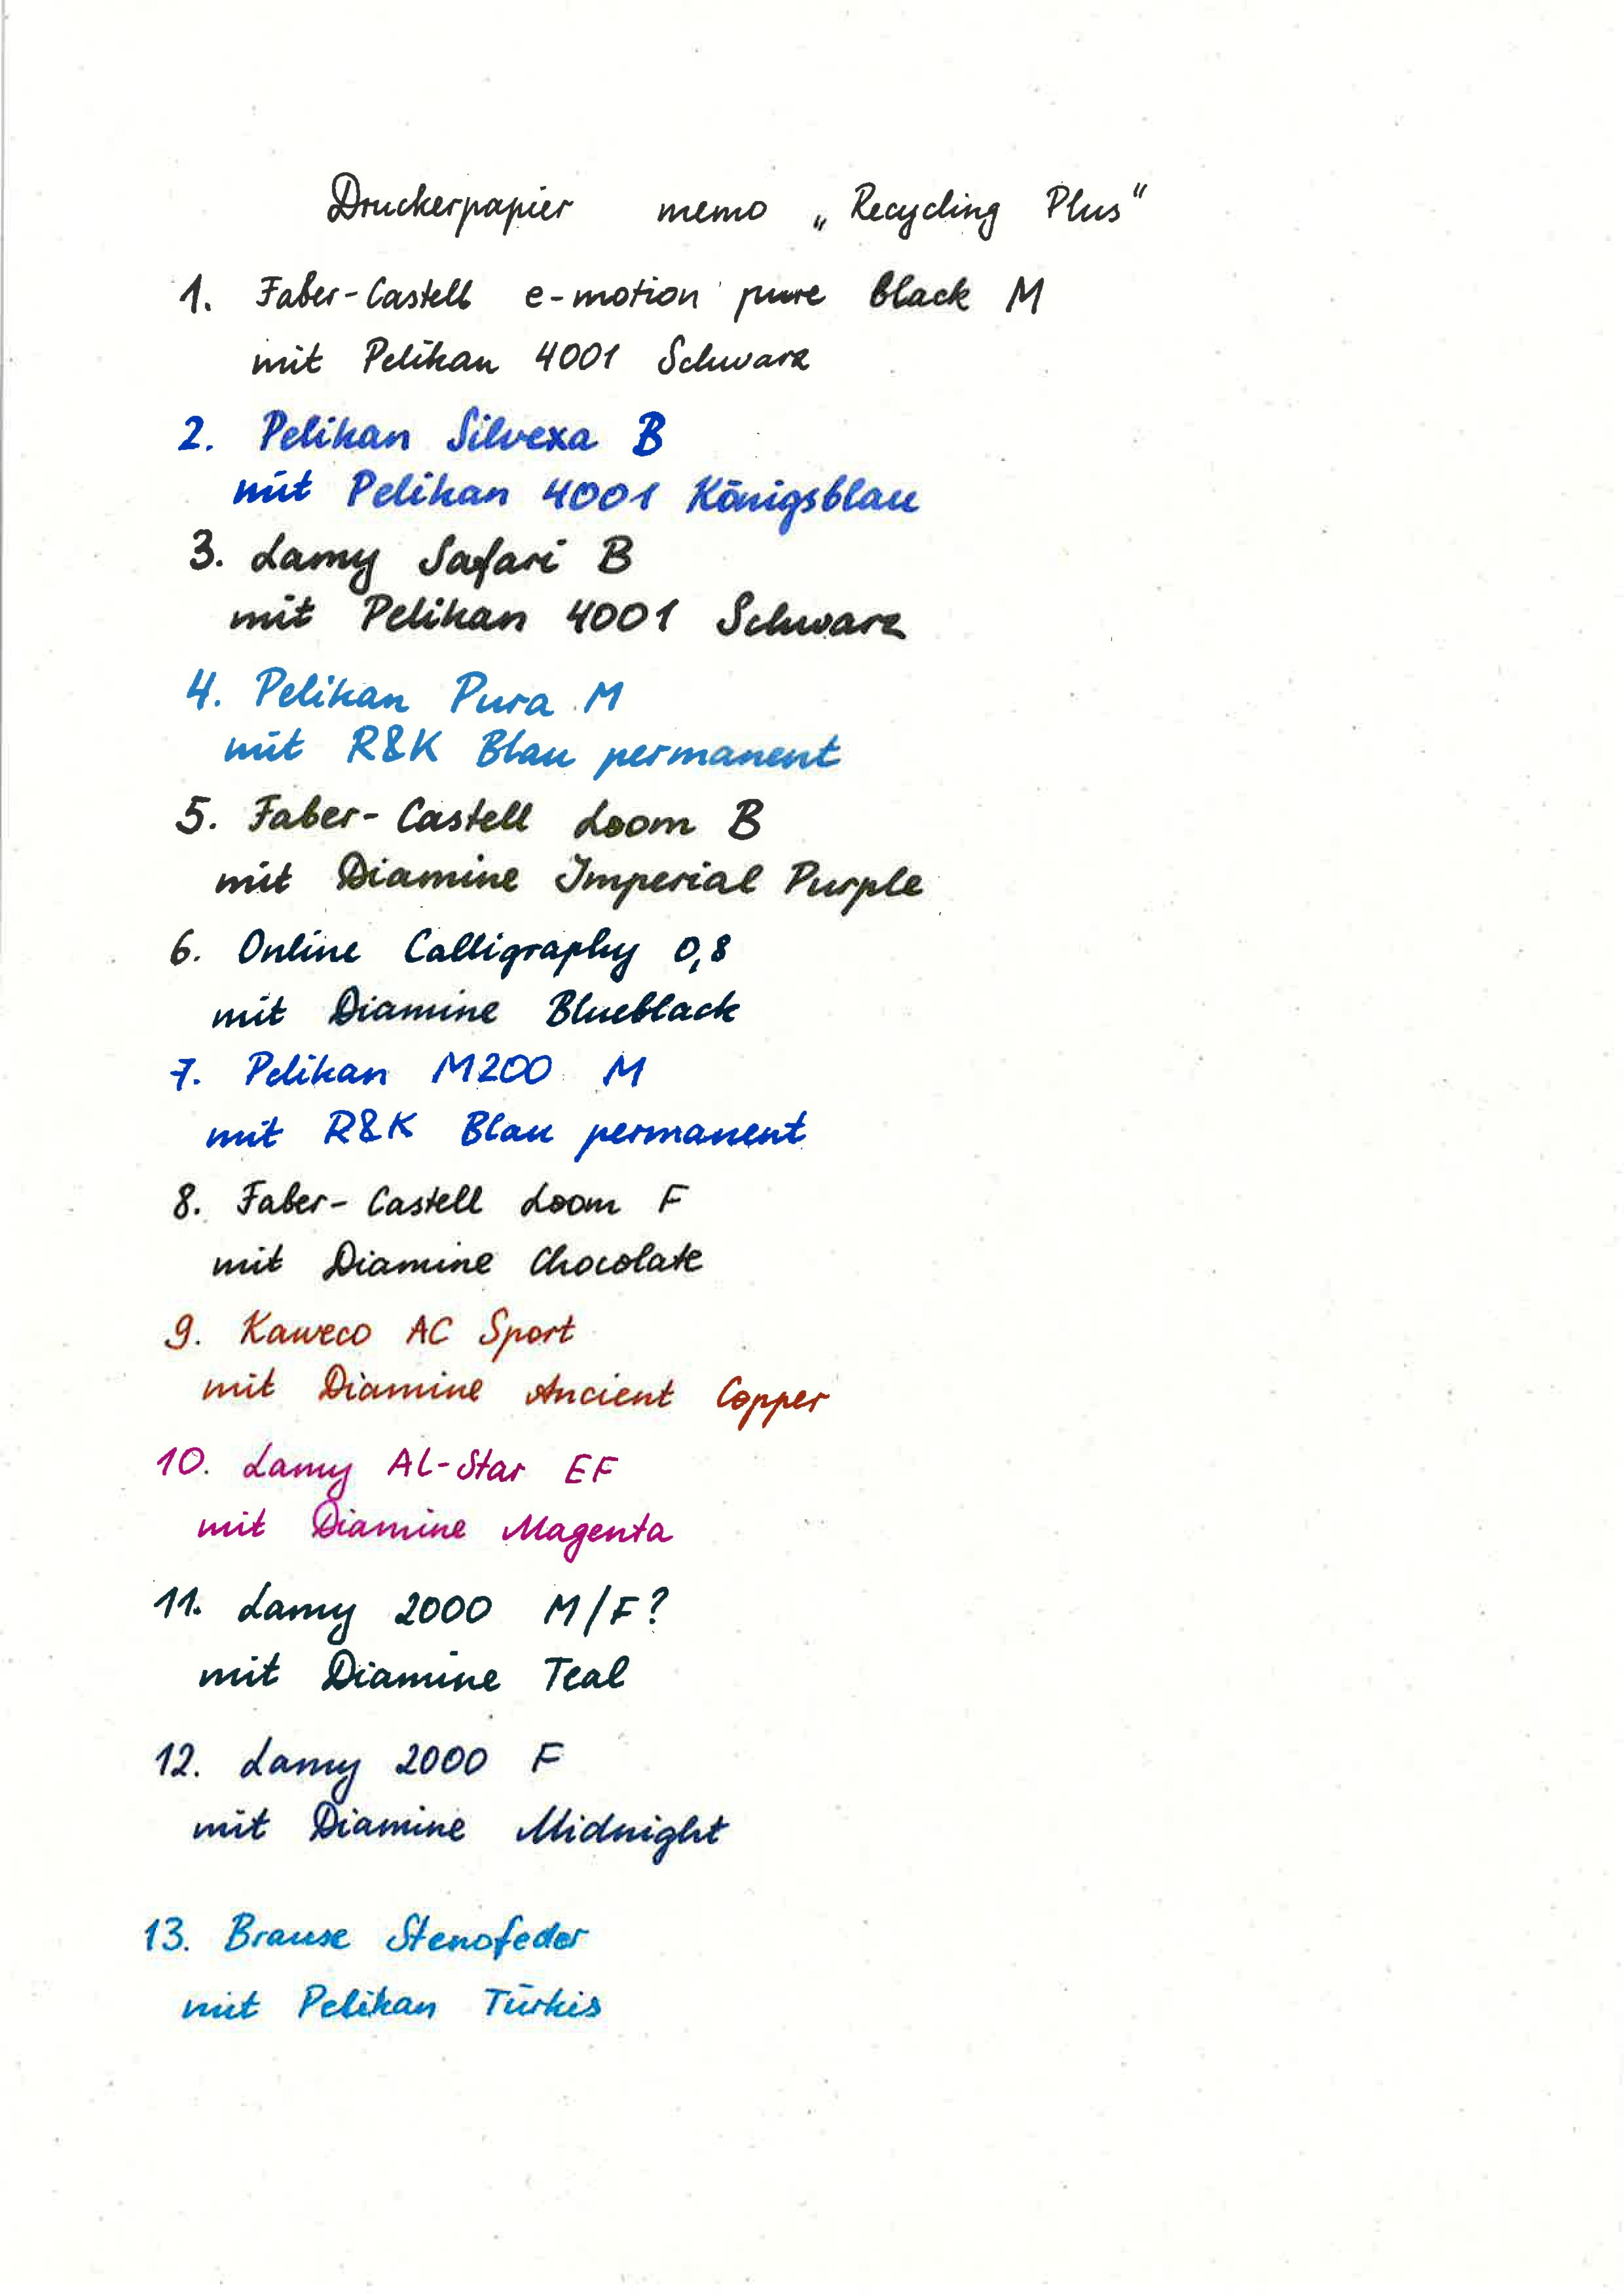 Druckerpapier memo „Recycling Plus“
1. Faber-Castell e-motion pure black M
mit Pelikan 4001 Schwarz
2. Pelikan Silvexa B
mit Pelikan 4001 Königsblau
3. Lamy Safari B
mit Pelikan 4001 Schwarz
4. Pelikan Pura M
mit R&K Blau permanent
5. Faber-Castell Loom B
mit Diamine Imperial Purple
6. Online Calligraphy 0,8
mit Diamine Blueblack
7. Pelikan M200 M
mit R&K Blau permanent
8. Faber-Castell Loom F
mit Diamine Chocolate
9. Kaweco AC Sport
mit Diamine Ancient Copper
10. Lamy AL-Star EF
mit Diamine Magenta
11. Lamy 2000 M/F?
mit Diamine Teal
12. Lamy 2000 F
mit Diamine Midnight
13. Brause Stenofeder
mit Pelikan Türkis